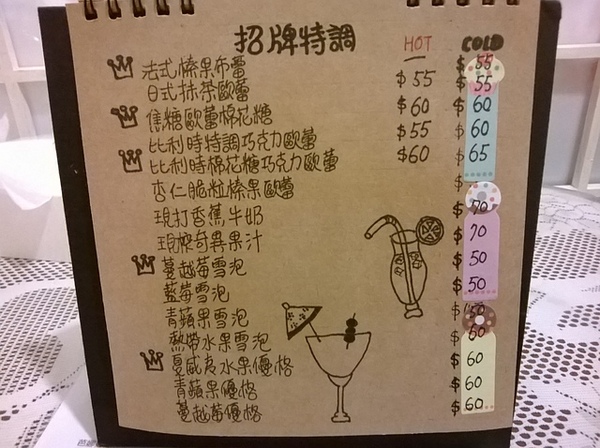 招牌特調 HOT COLD
法式榛果布蕾 $55
日式抹茶歐蕾 $55 $55
焦糖歐蕾棉花糖 $60 $60
比利時特調巧克力歐蕾 $55 $60
比利時棉花糖巧克力歐蕾 $60 $65
杏仁脆粒榛果歐蕾 $
現打香蕉牛奶 $70
現榨奇異果汁 $70
蔓越莓雪泡 $50
藍莓雪泡 $50
青蘋果雪泡 $50
熱帶水果雪泡 $60
夏威夷水果優格 $60
青蘋果優格 $60
蔓越莓優格 $60